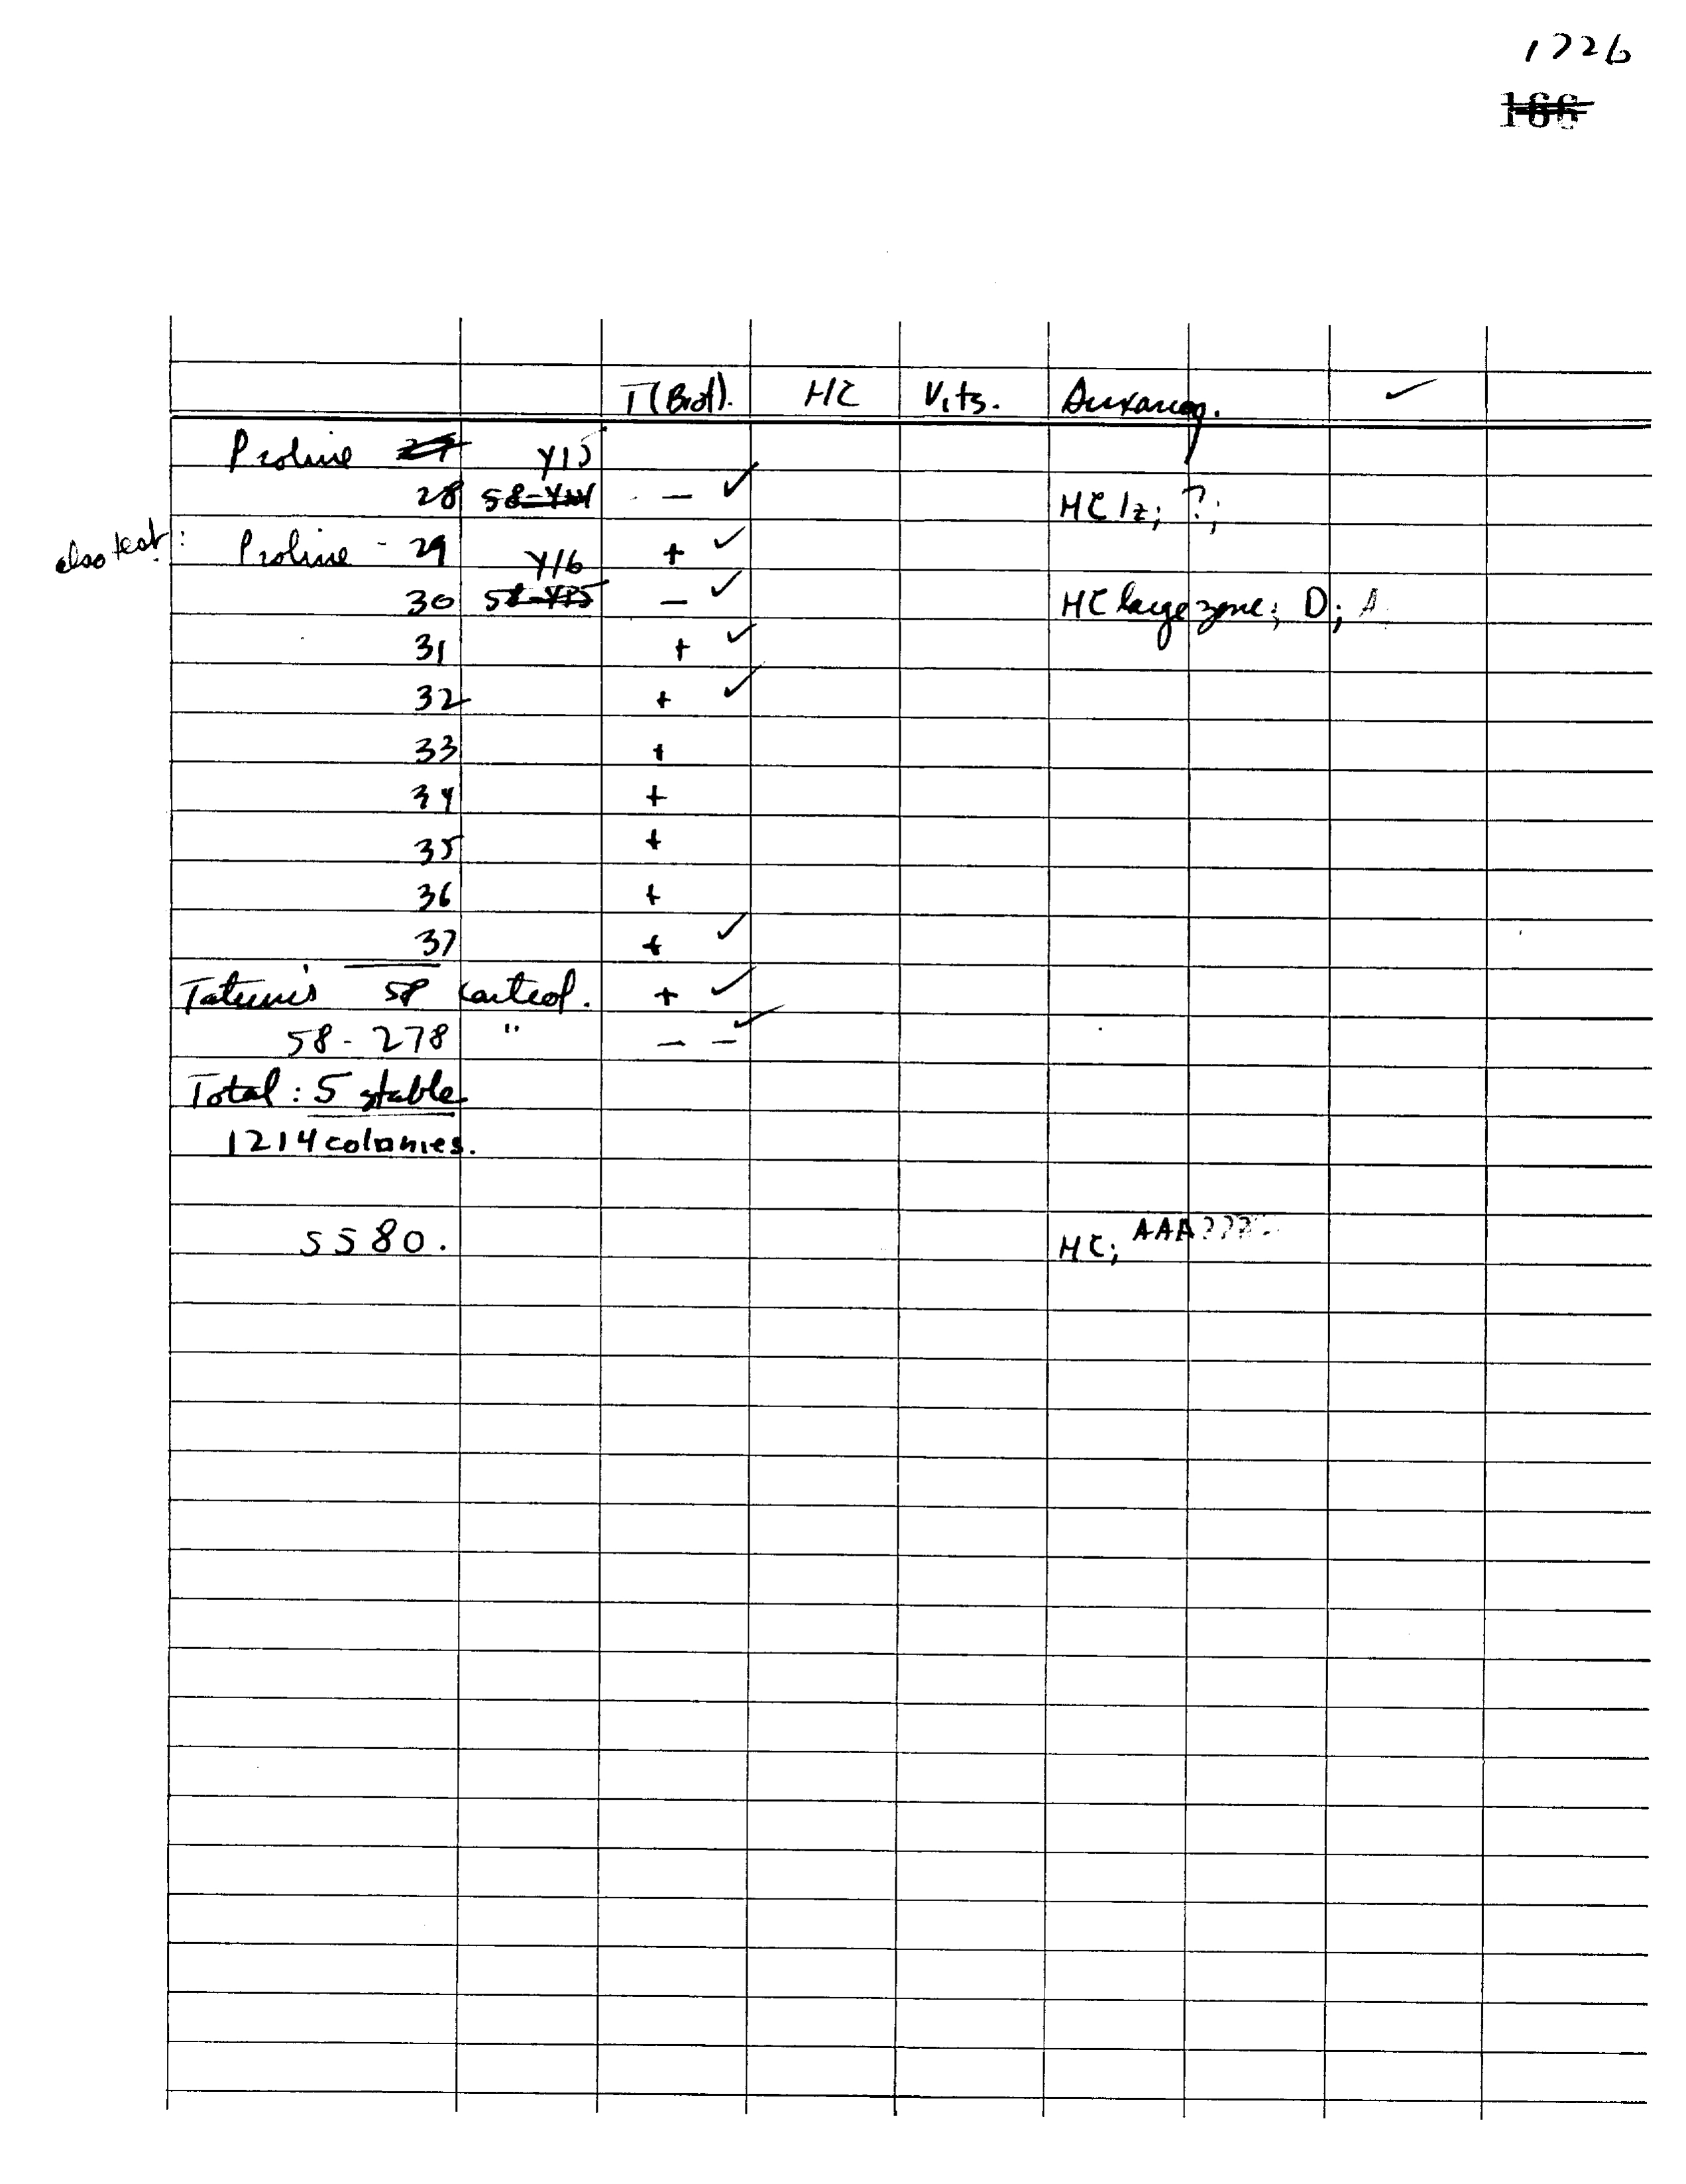 1726
166
T(Biot). HC Vits. Auxanog. ✓
Proline 27 Y15
28 58-Y14 - ✓ HC lz; ?;
also test: Proline - 29 + ✓
Y16
30 58-Y15 - ✓ HC large zone; D; A
31 + ✓
32 + ✓
33 +
34 +
35 +
36 +
37 + ✓
Tatum's 58 control. + ✓
58-278 " - - ✓
Total: 5 stable
1214 colonies.
5580. HC; AAA???